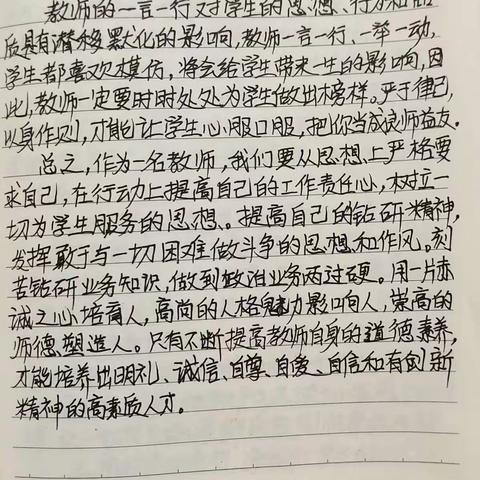 教师的一言一行对学生的思想、行为和品
质具有潜移默化的影响,教师一言一行、一举一动,
学生都喜欢模仿,将会给学生带来一生的影响,因
此,教师一定要时时处处为学生做出榜样。严于律己,
以身作则,才能让学生心服口服,把你当成良师益友。
总之,作为一名教师,我们要从思想上严格要
求自己,在行动上提高自己的工作责任心,树立一
切为学生服务的思想、。提高自己的钻研精神,
发挥敢于与一切困难做斗争的思想和作风。刻
苦钻研业务知识,做到政治业务两过硬。用一片赤
诚之心培育人,高尚的人格魅力影响人,崇高的
师德塑造人。只有不断提高教师自身的道德素养,
才能培养出明礼、诚信、自尊、自爱、自信和有创新
精神的高素质人才。